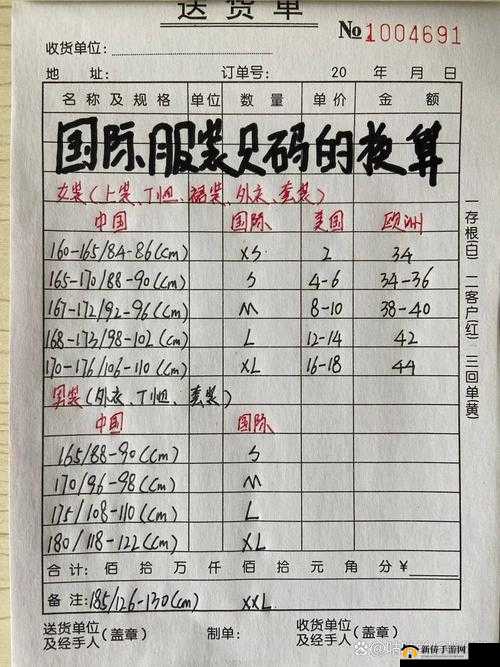 送货单
№1004691
收货单位:
地 址: 订单号: 20 年 月 日
名称及规格 单位 数量 单价 金额
国际服装尺码的换算
女装(上装、T恤、裙装、外衣、套装)
中国 国际 美国 欧洲
160-165/84-86(cm) XS 2 34
165-170/88-90(cm) S 4-6 34-36
167-172/92-96(cm) M 8-10 38-40
168-173/98-102(cm) L 12-14 42
170-176/106-110(cm) XL 16-18 44
男装(外衣、T恤、套装)
中国 国际
165/88-90(cm) S
170/96-98(cm) M
175/108-110(cm) L
180/118-122(cm) XL
合计: 佰 拾 万 仟 佰 拾 元 角 分 ¥
备注: 185/126-130(cm) XXL
送货单位及经手人(盖章) 制单: 收货单位及经手人(盖章)
一存根(白) 二客户(红) 三回单(黄)
新侍手游网